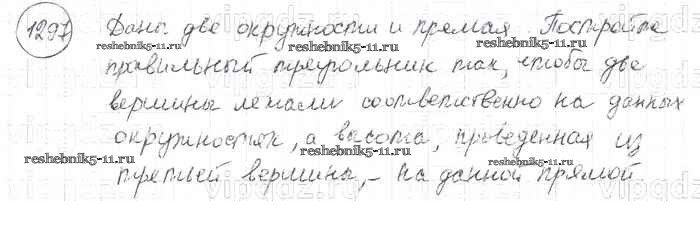 1297 Даны две окружности и прямая. Постройте
reshebnik5-11.ru reshebnik5-11.ru
правильный треугольник так, чтобы две
вершины лежали соответственно на данных
окружностях, а высота, проведенная из
reshebnik5-11.ru reshebnik5-11.ru
третьей вершины, – на данной прямой.
reshebnik5-11.ru